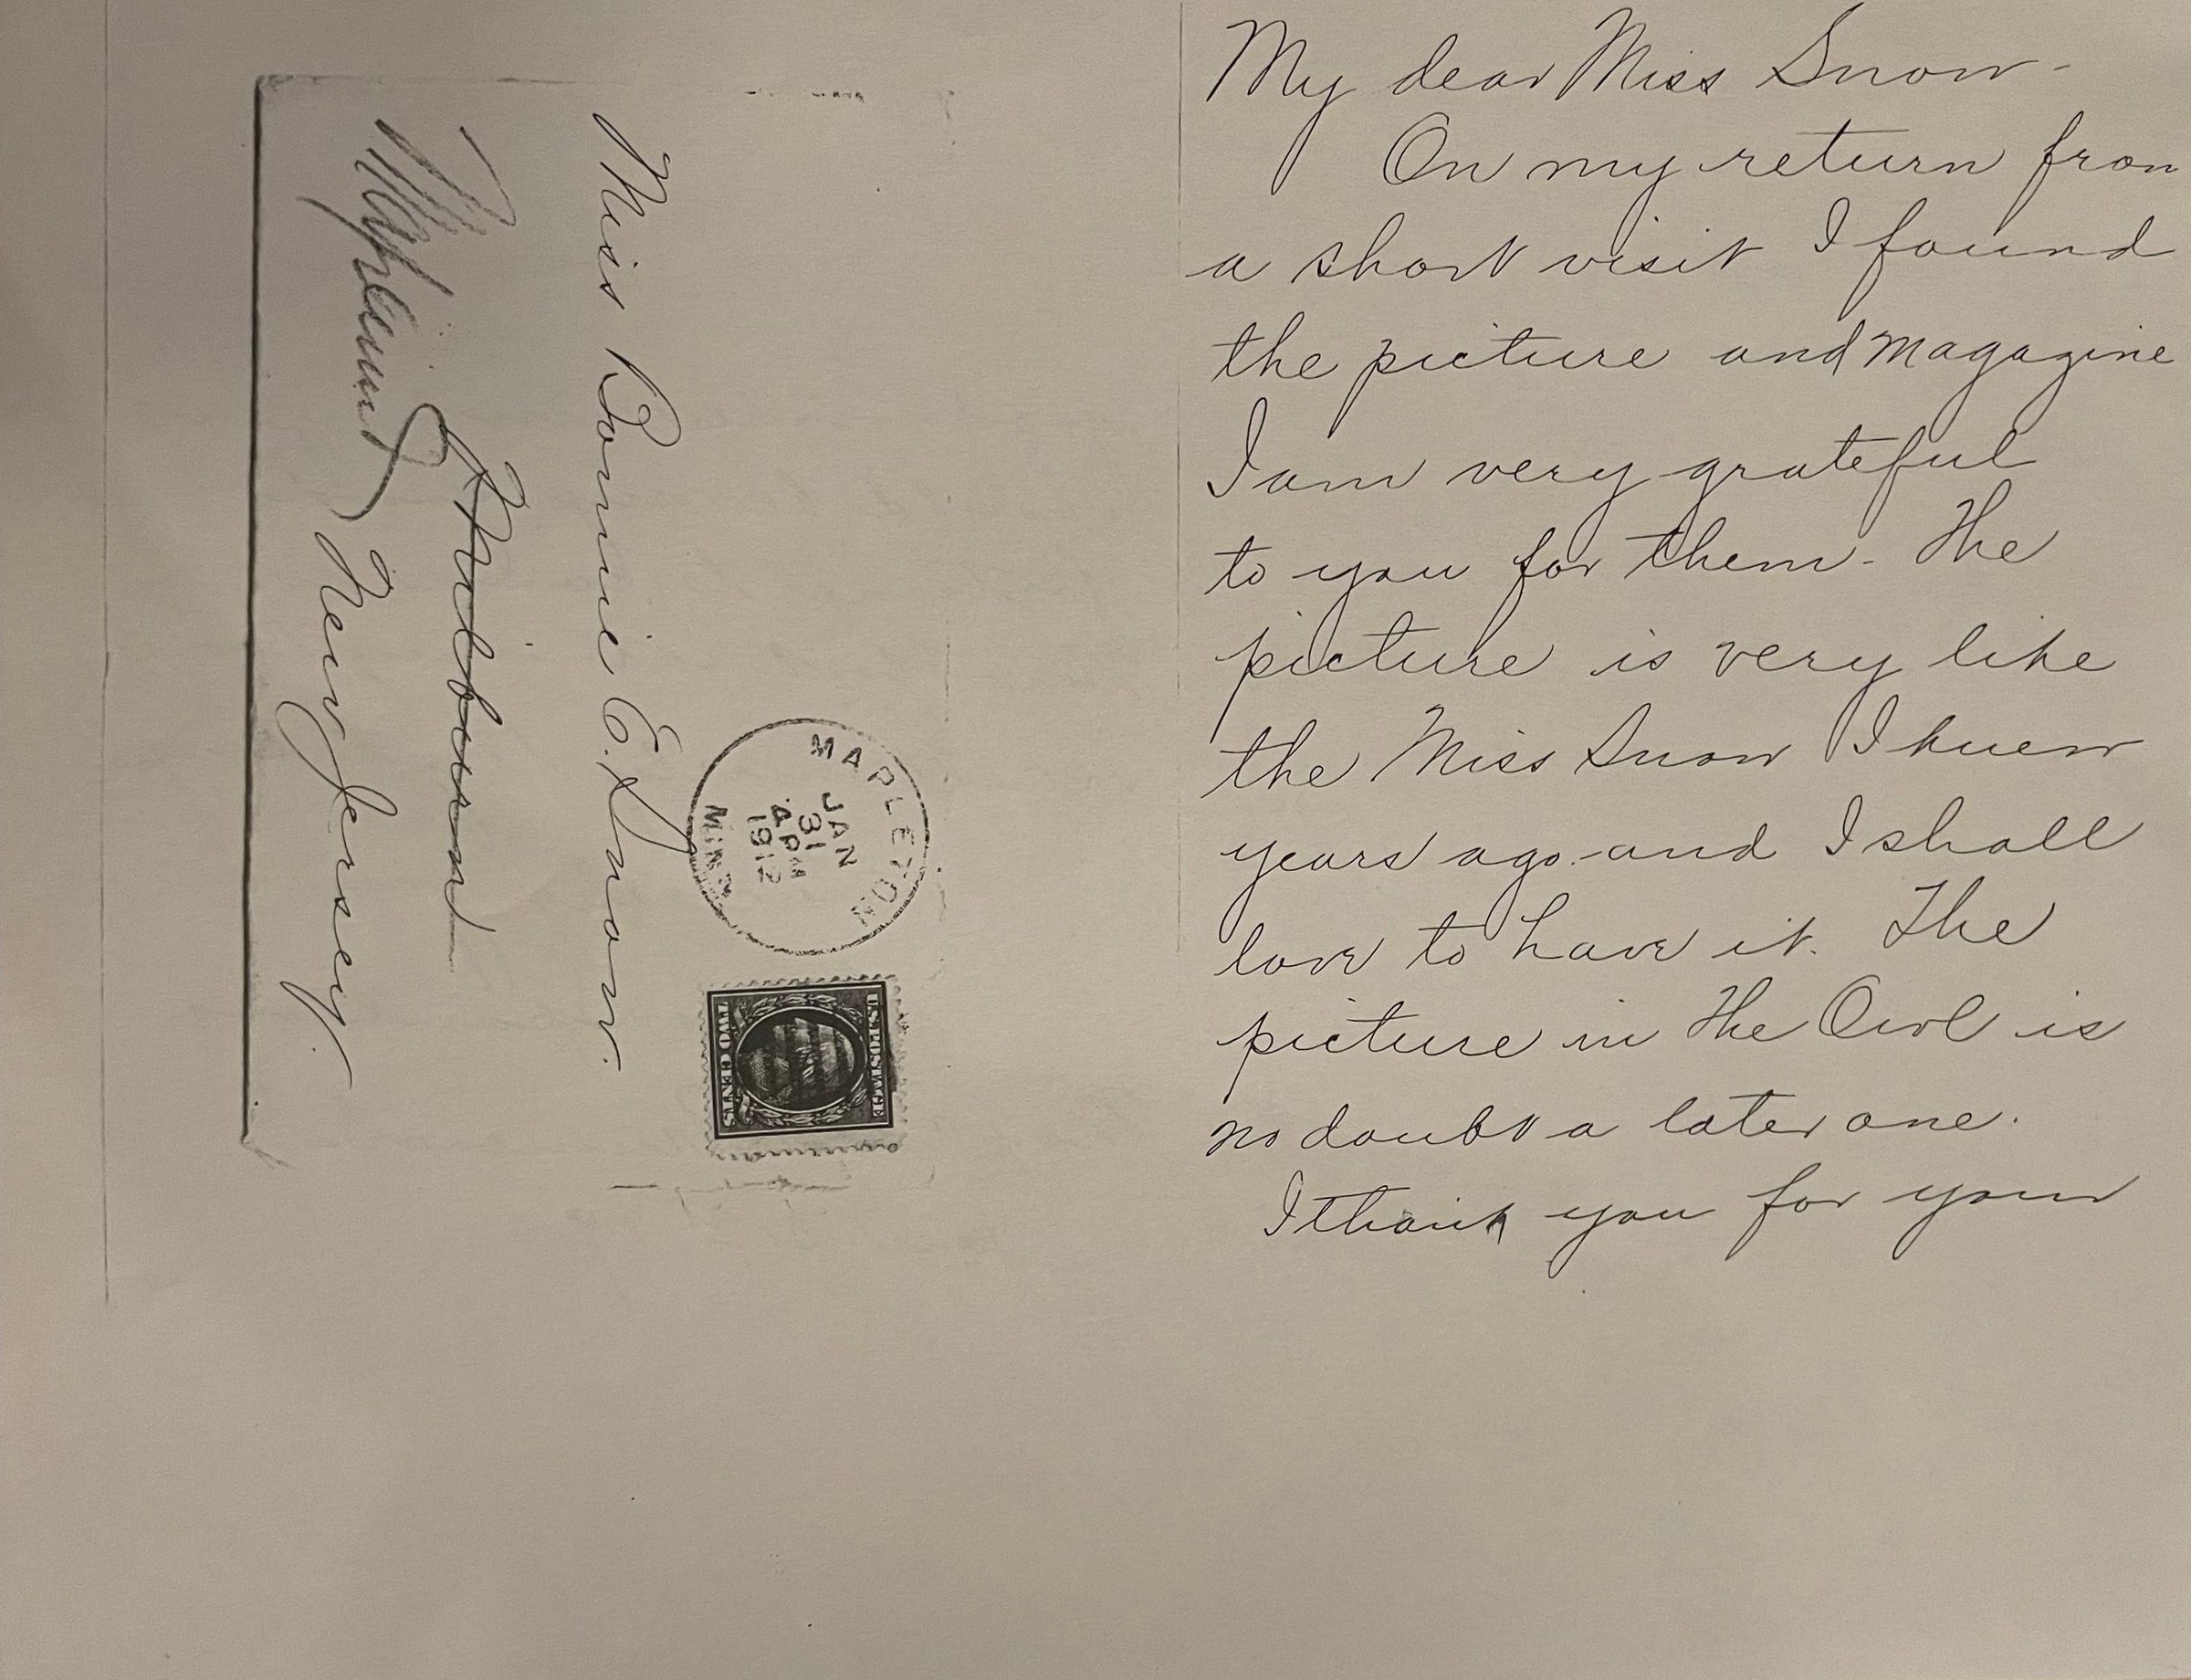 Miss Bonnie E. Snow.
Milburn
New Jersey.
MAPLETON
JAN
31
4 PM
1912
MINN
U.S. POSTAGE
TWO CENTS
My dear Miss Snow-
On my return from
a short visit I found
the picture and magazine
I am very grateful
to you for them- The
picture is very like
the Miss Snow I knew
years ago-and I shall
love to have it. The
picture in the Owl is
no doubt a later one.
I thank you for your